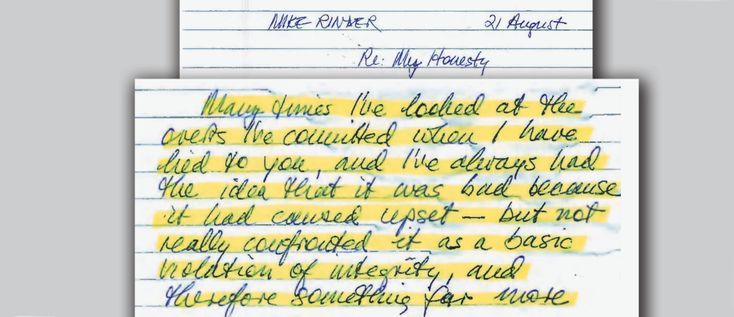 MIKE RINDER 21 August
Re: My Honesty
Many times I've looked at the
overts I've committed when I have
lied to you, and I've always had
the idea that it was bad because
it had caused upset — but not
really confronted it as a basic
violation of integrity, and
therefore something far more